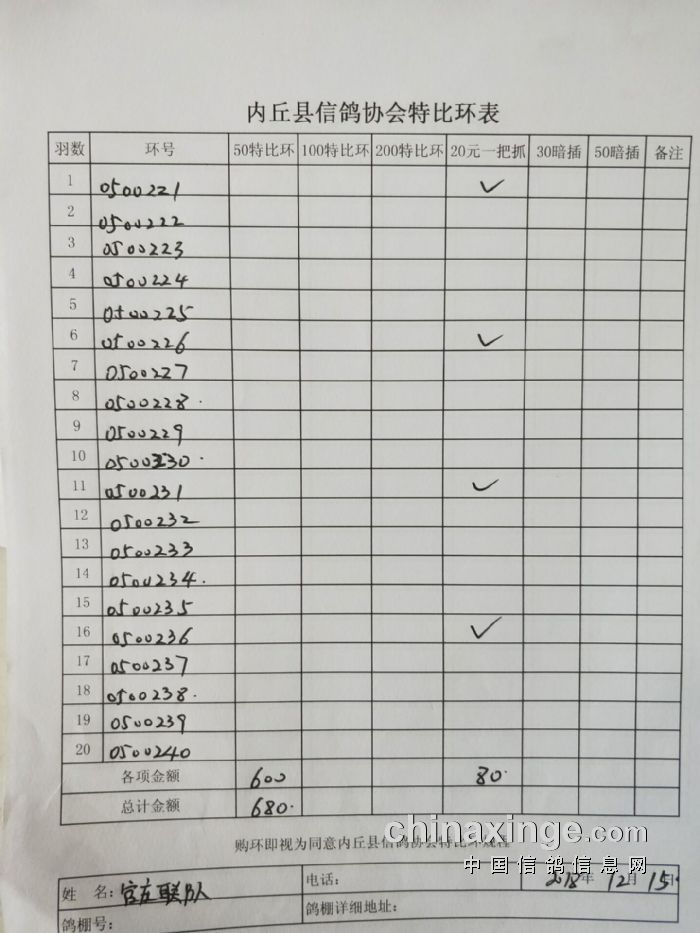 内丘县信鸽协会特比环表
羽数 环号 50特比环 100特比环 200特比环 20元一把抓 30暗插 50暗插 备注
1 0500221 ✓
2 0500222
3 0500223
4 0500224
5 0500225
6 0500226 ✓
7 0500227
8 0500228.
9 0500229
10 0500230.
11 0500231 ✓
12 0500232
13 0500233
14 0500234.
15 0500235
16 0500236 ✓
17 0500237
18 0500238.
19 0500239
20 0500240
各项金额 600 80.
总计金额 680.
购环即视为同意内丘县信鸽协会特比环规程
chinaxinge.com
中国信鸽信息网
姓 名: 联队 电话: 2018年 12月 15日
鸽棚号: 鸽棚详细地址: